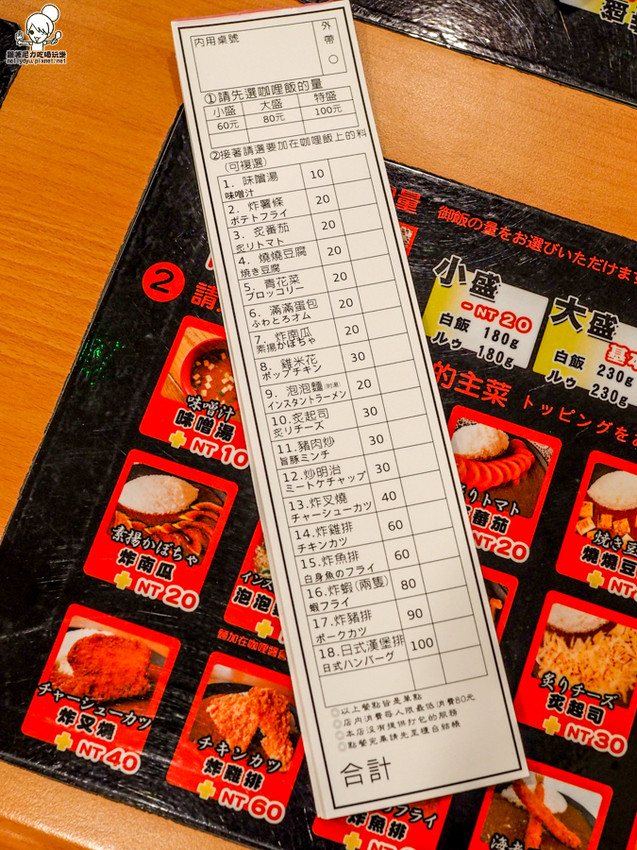 跟著尼力吃喝玩樂
nellydyu.pixnet.net
內用桌號
外帶
①請先選咖哩飯的量
小盛 大盛 特盛
60元 80元 100元
②接著請選要加在咖哩飯上的料
(可複選)
1. 味噌湯 10
味噌汁
2. 炸薯條 20
ポテトフライ
3. 炙番茄 20
炙りトマト
4. 燒燒豆腐 20
焼き豆腐
5. 青花菜 20
ブロッコリー
6. 滿滿蛋包 20
ふわとろオム
7. 炸南瓜 20
素揚かぼちゃ
8. 雞米花 30
ポップチキン
9. 泡泡麵 20
インスタントラーメン
10.炙起司 30
炙りチーズ
11.豬肉炒 30
旨豚ミンチ
12.炒明治 30
ミートケチャップ
13.炸叉燒 40
チャーシューカツ
14.炸雞排 60
チキンカツ
15.炸魚排 60
白身魚のフライ
16.炸蝦(兩隻) 80
蝦フライ
17.炸豬排 90
ポークカツ
18.日式漢堡排 100
日式ハンバーグ
◎以上餐點皆是單點
◎店內消費每人限最低消費80元
◎本店沒有提供打包的服務
◎點餐完畢請先至櫃台結帳
合計
量
御飯の量をお選びいただけます
小盛
-NT 20
白飯 180g
ルゥ 180g
大盛
白飯 230g
ルゥ 230g
2
請
的主菜
トッピングを
味噌汁
味噌湯
+NT 10
素揚かぼちゃ
炸南瓜
+NT 20
泡泡
チャーシューカツ
炸叉燒
+NT 40
チキンカツ
炸雞排
+NT 60
炸魚排
りトマト
番茄
NT 20
焼き豆
燒燒豆
+NT
炙りチーズ
炙起司
+NT 30
海老